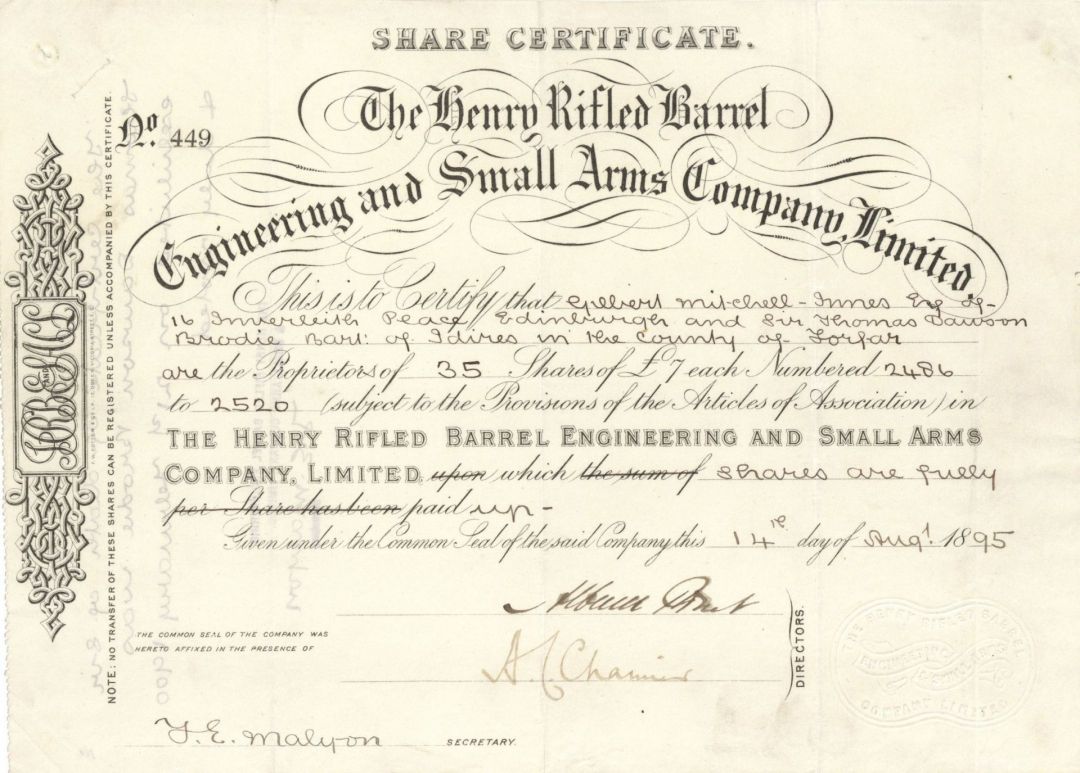 SHARE CERTIFICATE.
No. 449
The Henry Rifled Barrel
Engineering and Small Arms Company, Limited.
This is to Certify that Gilbert Mitchell-Innes Esq of
16 Inverleith Place Edinburgh and Sir Thomas Dawson
Brodie Bart: of Idvies in the County of Forfar
are the Proprietors of 35 Shares of £7 each Numbered 2486
to 2520 (subject to the Provisions of the Articles of Association) in
THE HENRY RIFLED BARREL ENGINEERING AND SMALL ARMS
COMPANY, LIMITED, upon which the sum of shares are fully
per Share has been paid up -
Given under the Common Seal of the said Company this 14th day of Augt. 1895
THE COMMON SEAL OF THE COMPANY WAS
HERETO AFFIXED IN THE PRESENCE OF
A. C. Chamier
DIRECTORS.
F. E. Malyon SECRETARY.
NOTE: NO TRANSFER OF THESE SHARES CAN BE REGISTERED UNLESS ACCOMPANIED BY THIS CERTIFICATE.
HRBE AND SACL
THE HENRY RIFLED BARREL
ENGINEERING
& SMALL ARMS
COMPANY LIMITED